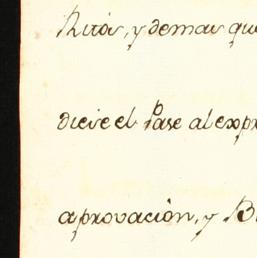 Ritos, y demas que
diese el Pase al expr
aprovación, y B